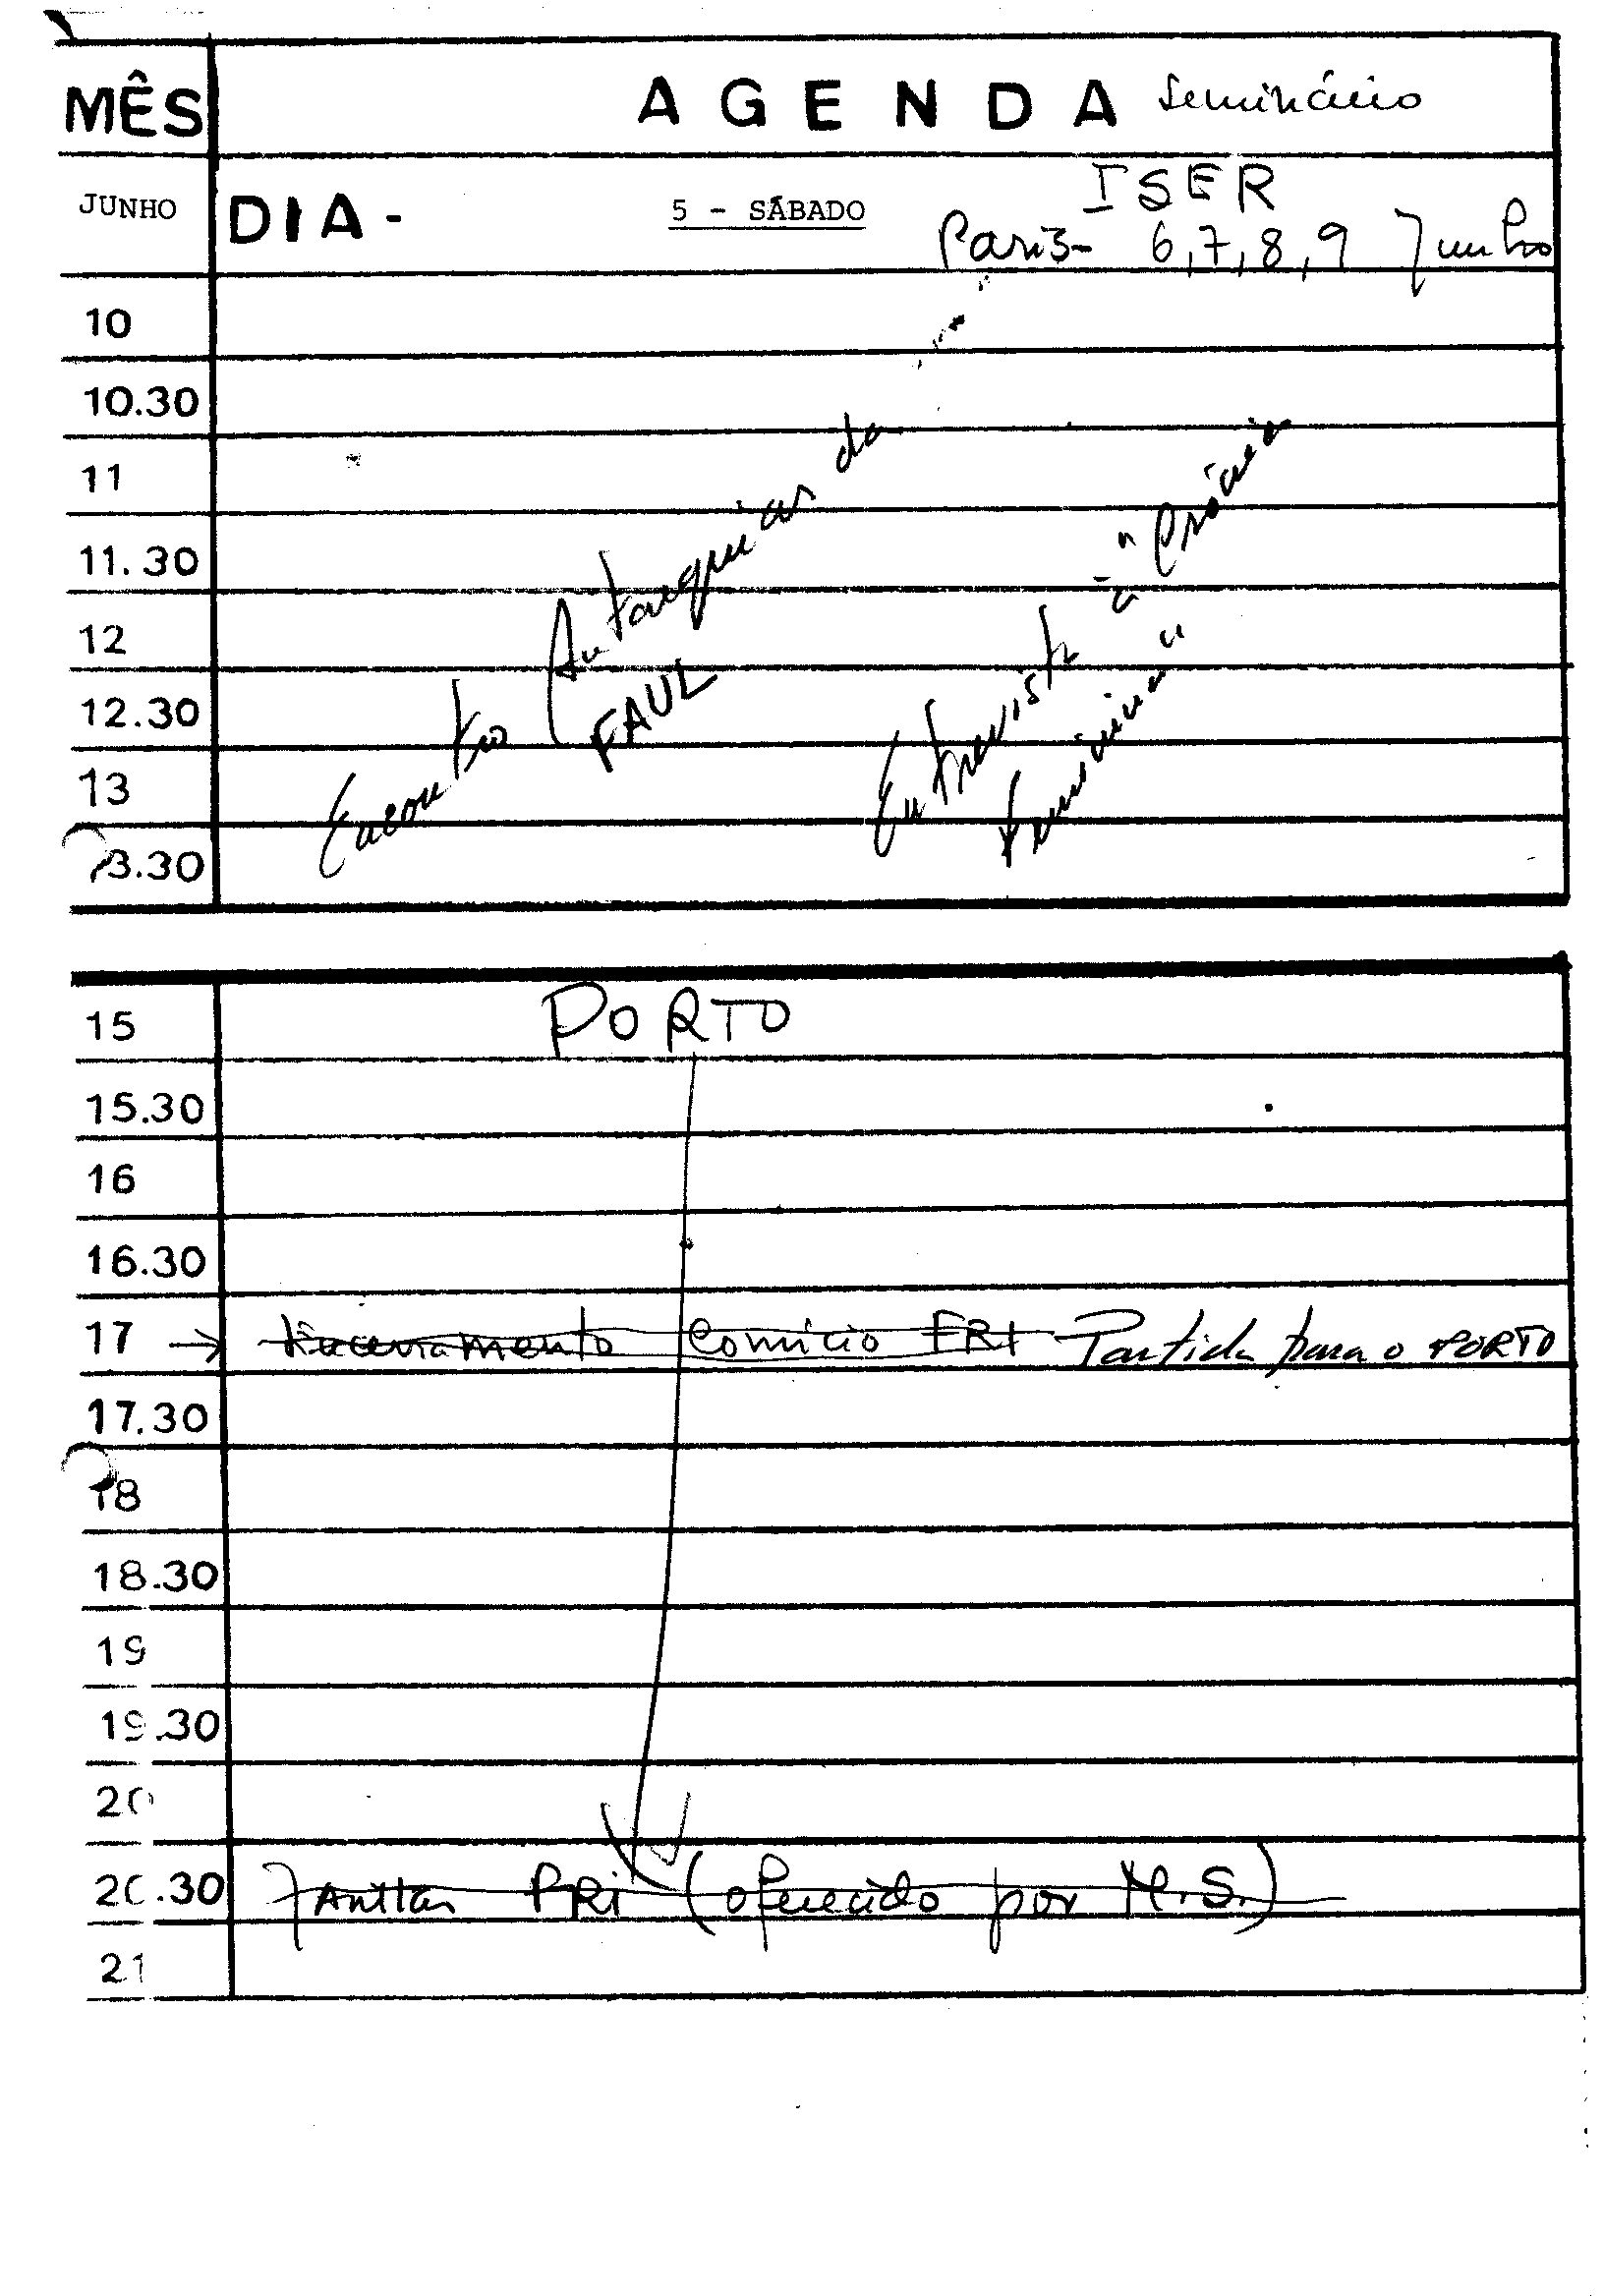 MÊS
A G E N D A Seminário
JUNHO
DIA - 5 - SÁBADO
ISER
Paris - 6, 7, 8, 9 Junho
10
10.30
11
11.30
12
12.30
13
13.30
Encontro Autarquias da
FAUL
Entrevista à "Crónica
Feminina"
15 PORTO
15.30
16
16.30
17 → Encerramento Comício FRI Partida para o PORTO
17.30
18
18.30
19
19.30
20
20.30 Jantar FRI (oferecido por M.S.)
21